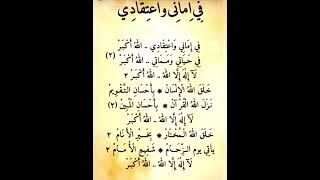 فِي إِمَانِى وَاعْتِقَادِي
فِي إِمَانِي وَاعْتِقَادِي .. اللهُ أَكْبَرْ
فِي حَيَاتِي وَمَمَاتِي .. اللهُ أَكْبَرْ (٢)
لَآ إِلَهَ إِلَّا اللهُ .. اللهُ أَكْبَرْ ٢
خَلَقَ اللهُ الْإِنْسَانْ * بِأَحْسَانِ التَّقْوِيمْ
نَزَلَ اللهُ الْقُرْآنْ * بِأَحْسَانِ الْمُبِيْنْ (٢)
لَآ إِلَهَ إِلَّا اللهُ .. اللهُ أَكْبَرْ
خَلَقَ اللهُ الْمُخْتَارْ * بِخَيْرِ الْأَنَامْ ٢
يَأْتِي يَوم الزِّحَامْ * شَفِيعِ الْأَمَامْ ٢
لَآ إِلَهَ إِلَّا اللهُ .. اللهُ أَكْبَرْ